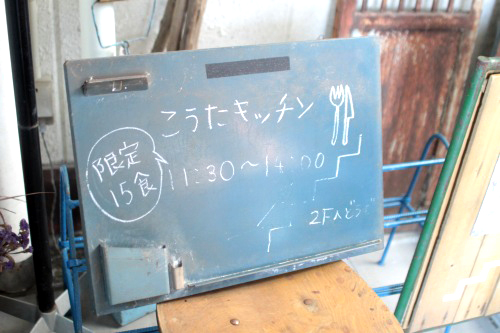 こうたキッチン
限定
15食
11:30～14:00
2Fへどうぞ